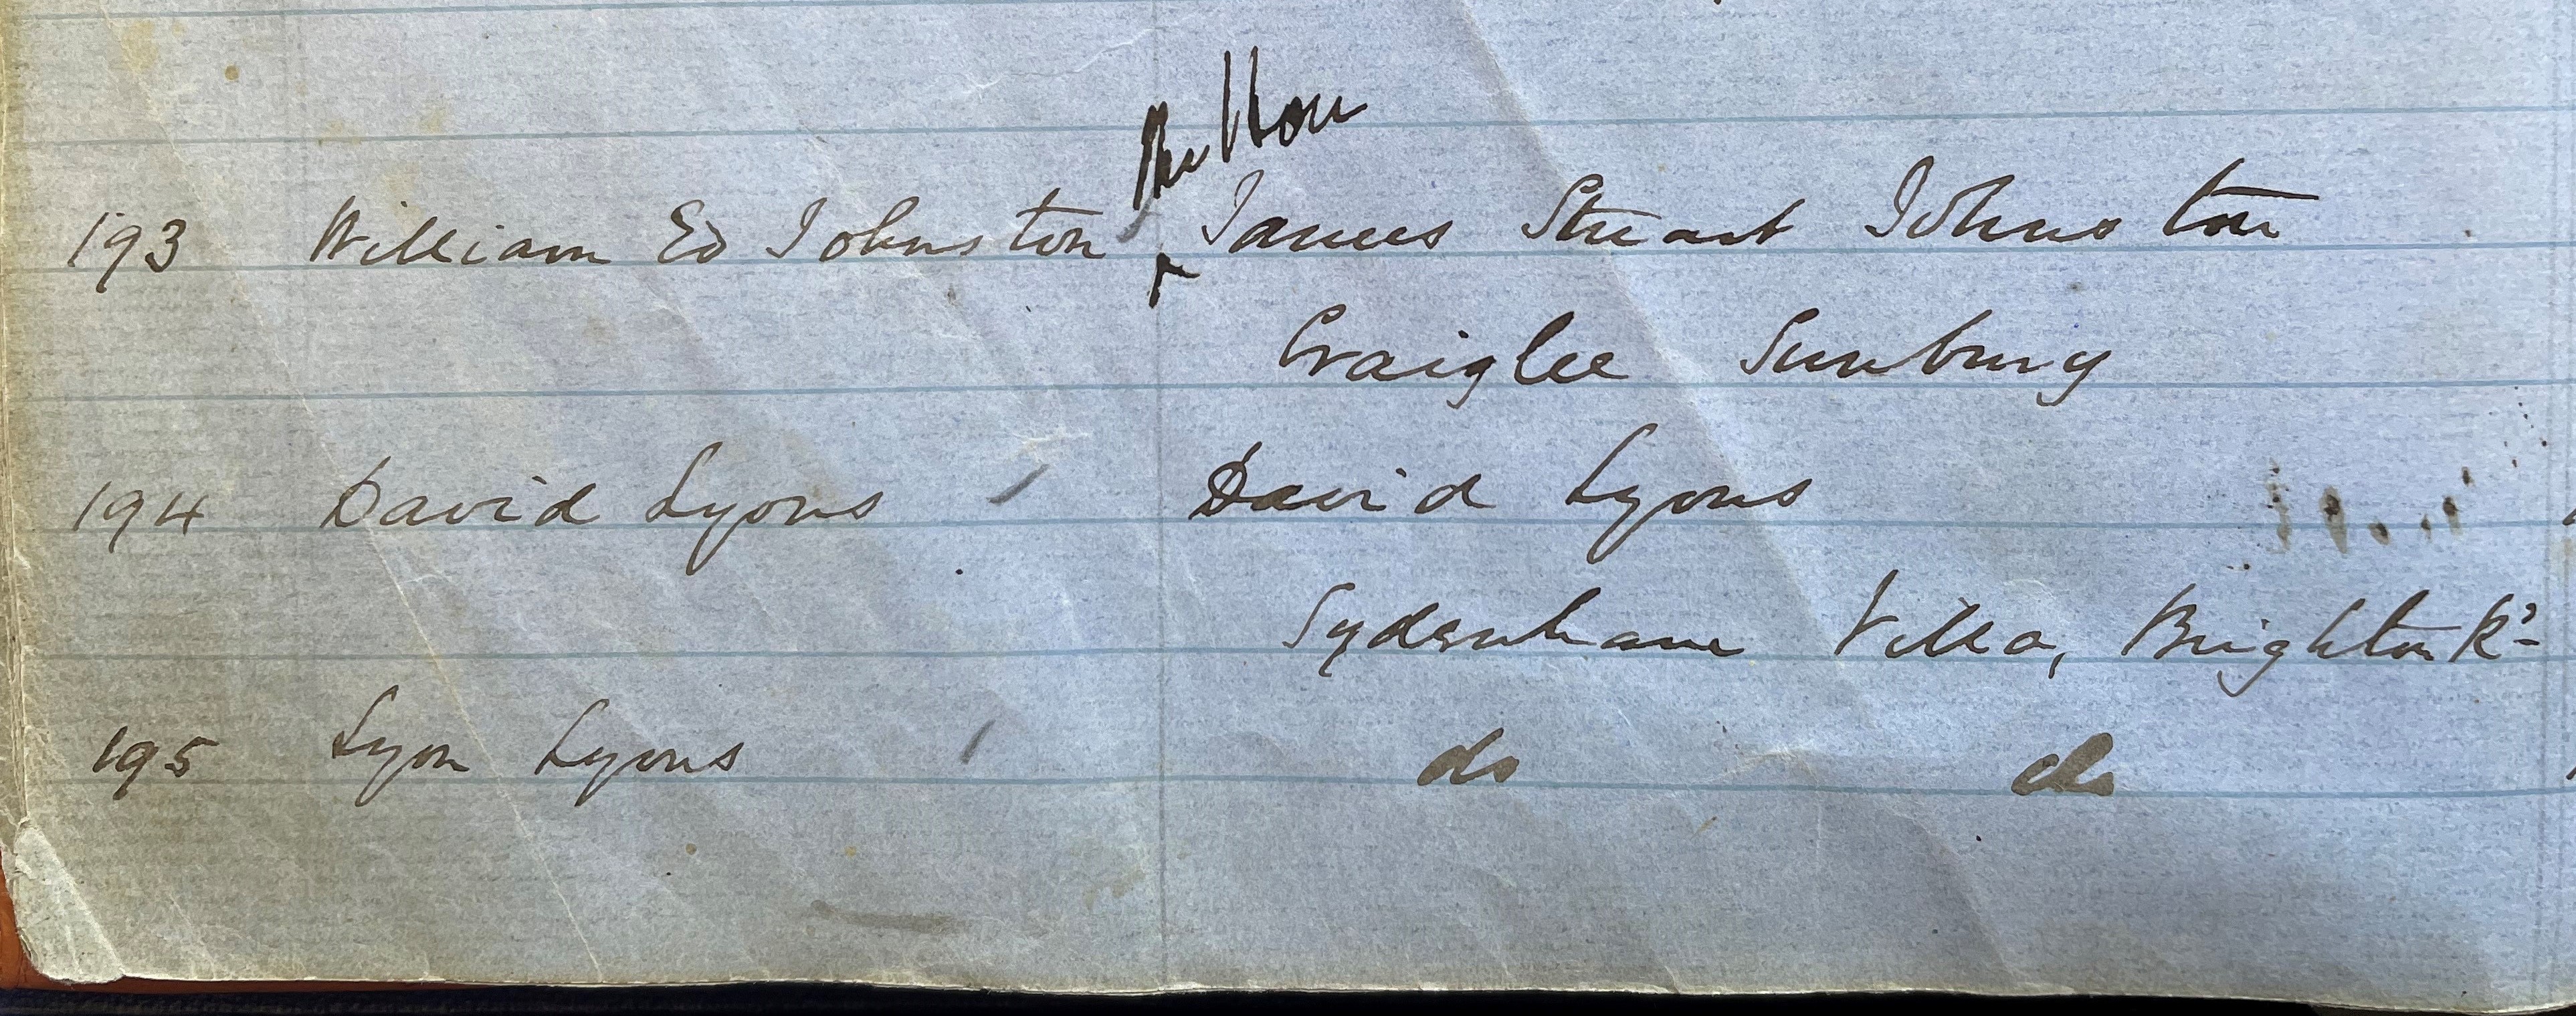 The Hon
193 William Ed Johnston James Stuart Johnston
Craiglee Sunbury
194 David Lyons David Lyons
Sydenham Villa, Brighton Rd
195 Lyon Lyons do do